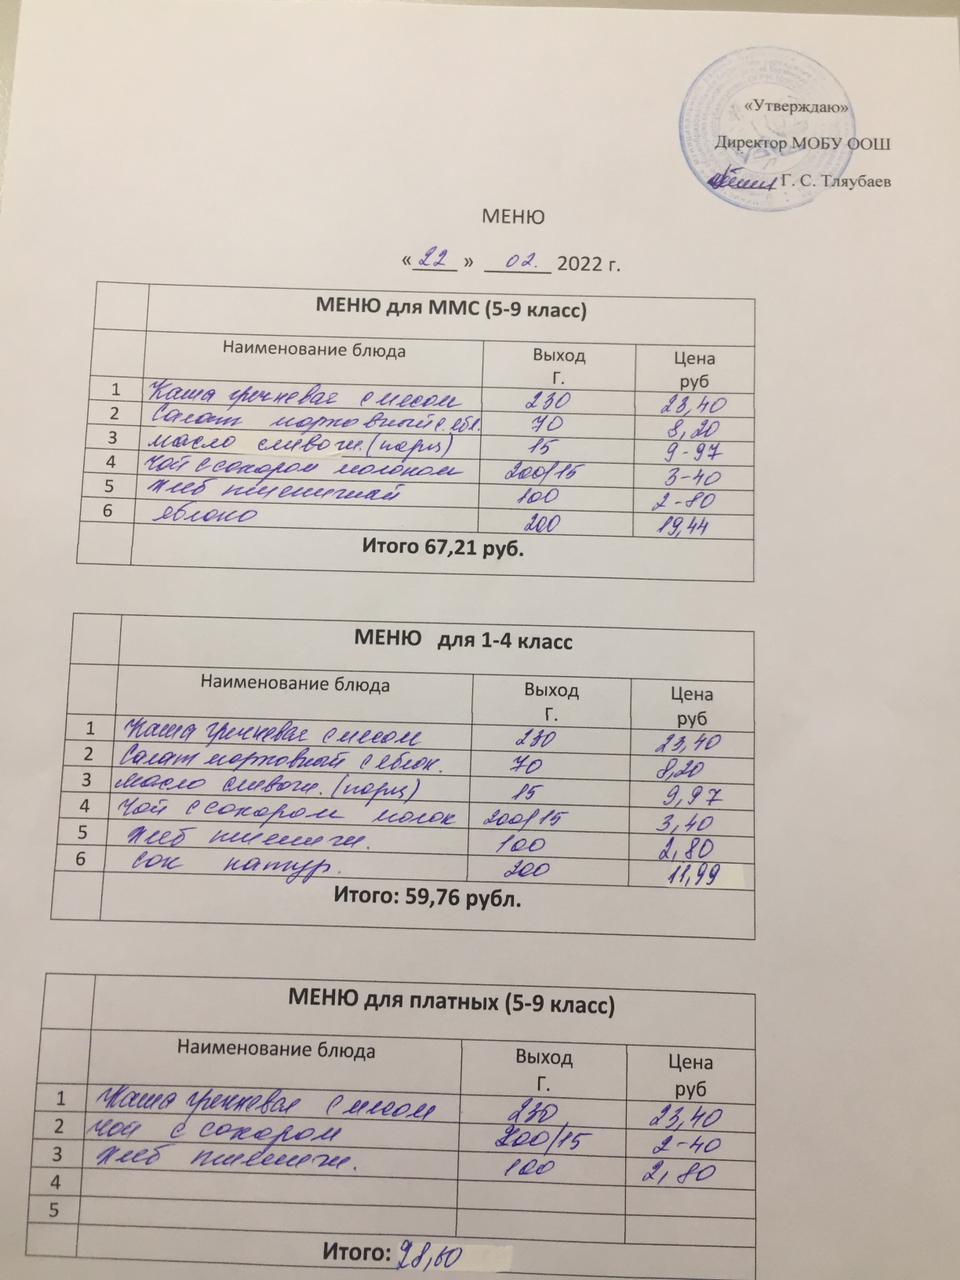 «Утверждаю»
Директор МОБУ ООШ
Г. С. Тляубаев
МЕНЮ
« 22 » 02. 2022 г.
МЕНЮ для ММС (5-9 класс)
Наименование блюда Выход Г. Цена руб
1 Каша гречневая с мясом 230 23,40
2 Салат морковный с ябл. 70 8,20
3 масло сливочн. (порц) 15 9-97
4 чай с сахаром молоком 200/15 3-40
5 хлеб пшеничный 100 2-80
6 яблоко 200 19,44
Итого 67,21 руб.
МЕНЮ для 1-4 класс
Наименование блюда Выход Г. Цена руб
1 Каша гречневая с мясом 230 23,40
2 Салат морковный с яблок. 70 8,20
3 масло сливочн. (порц) 15 9,97
4 чай с сахаром молок 200/15 3,40
5 хлеб пшеничн. 100 2,80
6 сок натур. 200 11,99
Итого: 59,76 рубл.
МЕНЮ для платных (5-9 класс)
Наименование блюда Выход Г. Цена руб
1 Каша гречневая с мясом 230 23,40
2 чай с сахаром 200/15 2-40
3 хлеб пшеничн. 100 2,80
4
5
Итого: 28,60